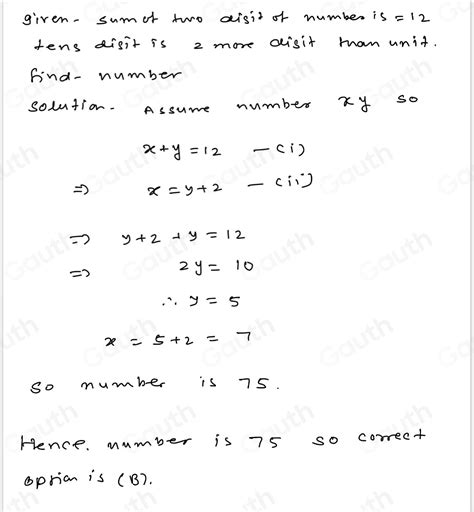 given- sum of two digit of number is = 12
tens digit is 2 more digit than unit.
find- number
solution- Assume number xy so
x+y=12 -(i)
=> x=y+2 -(ii)
=> y+2+y=12
=> 2y=10
∴ y=5
x=5+2=7
so number is 75.
Hence. number is 75 so correct
option is (B).